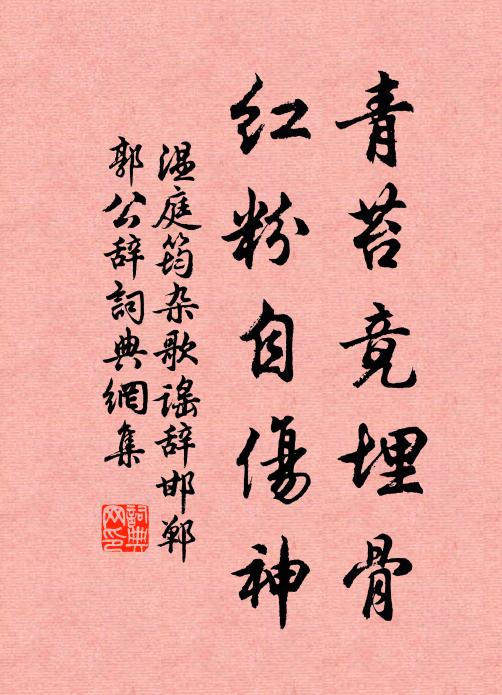 青苔竟埋骨
红粉自傷神
温庭筠杂歌谣辞邯郸
郭公辞詞典網集
詞典网印